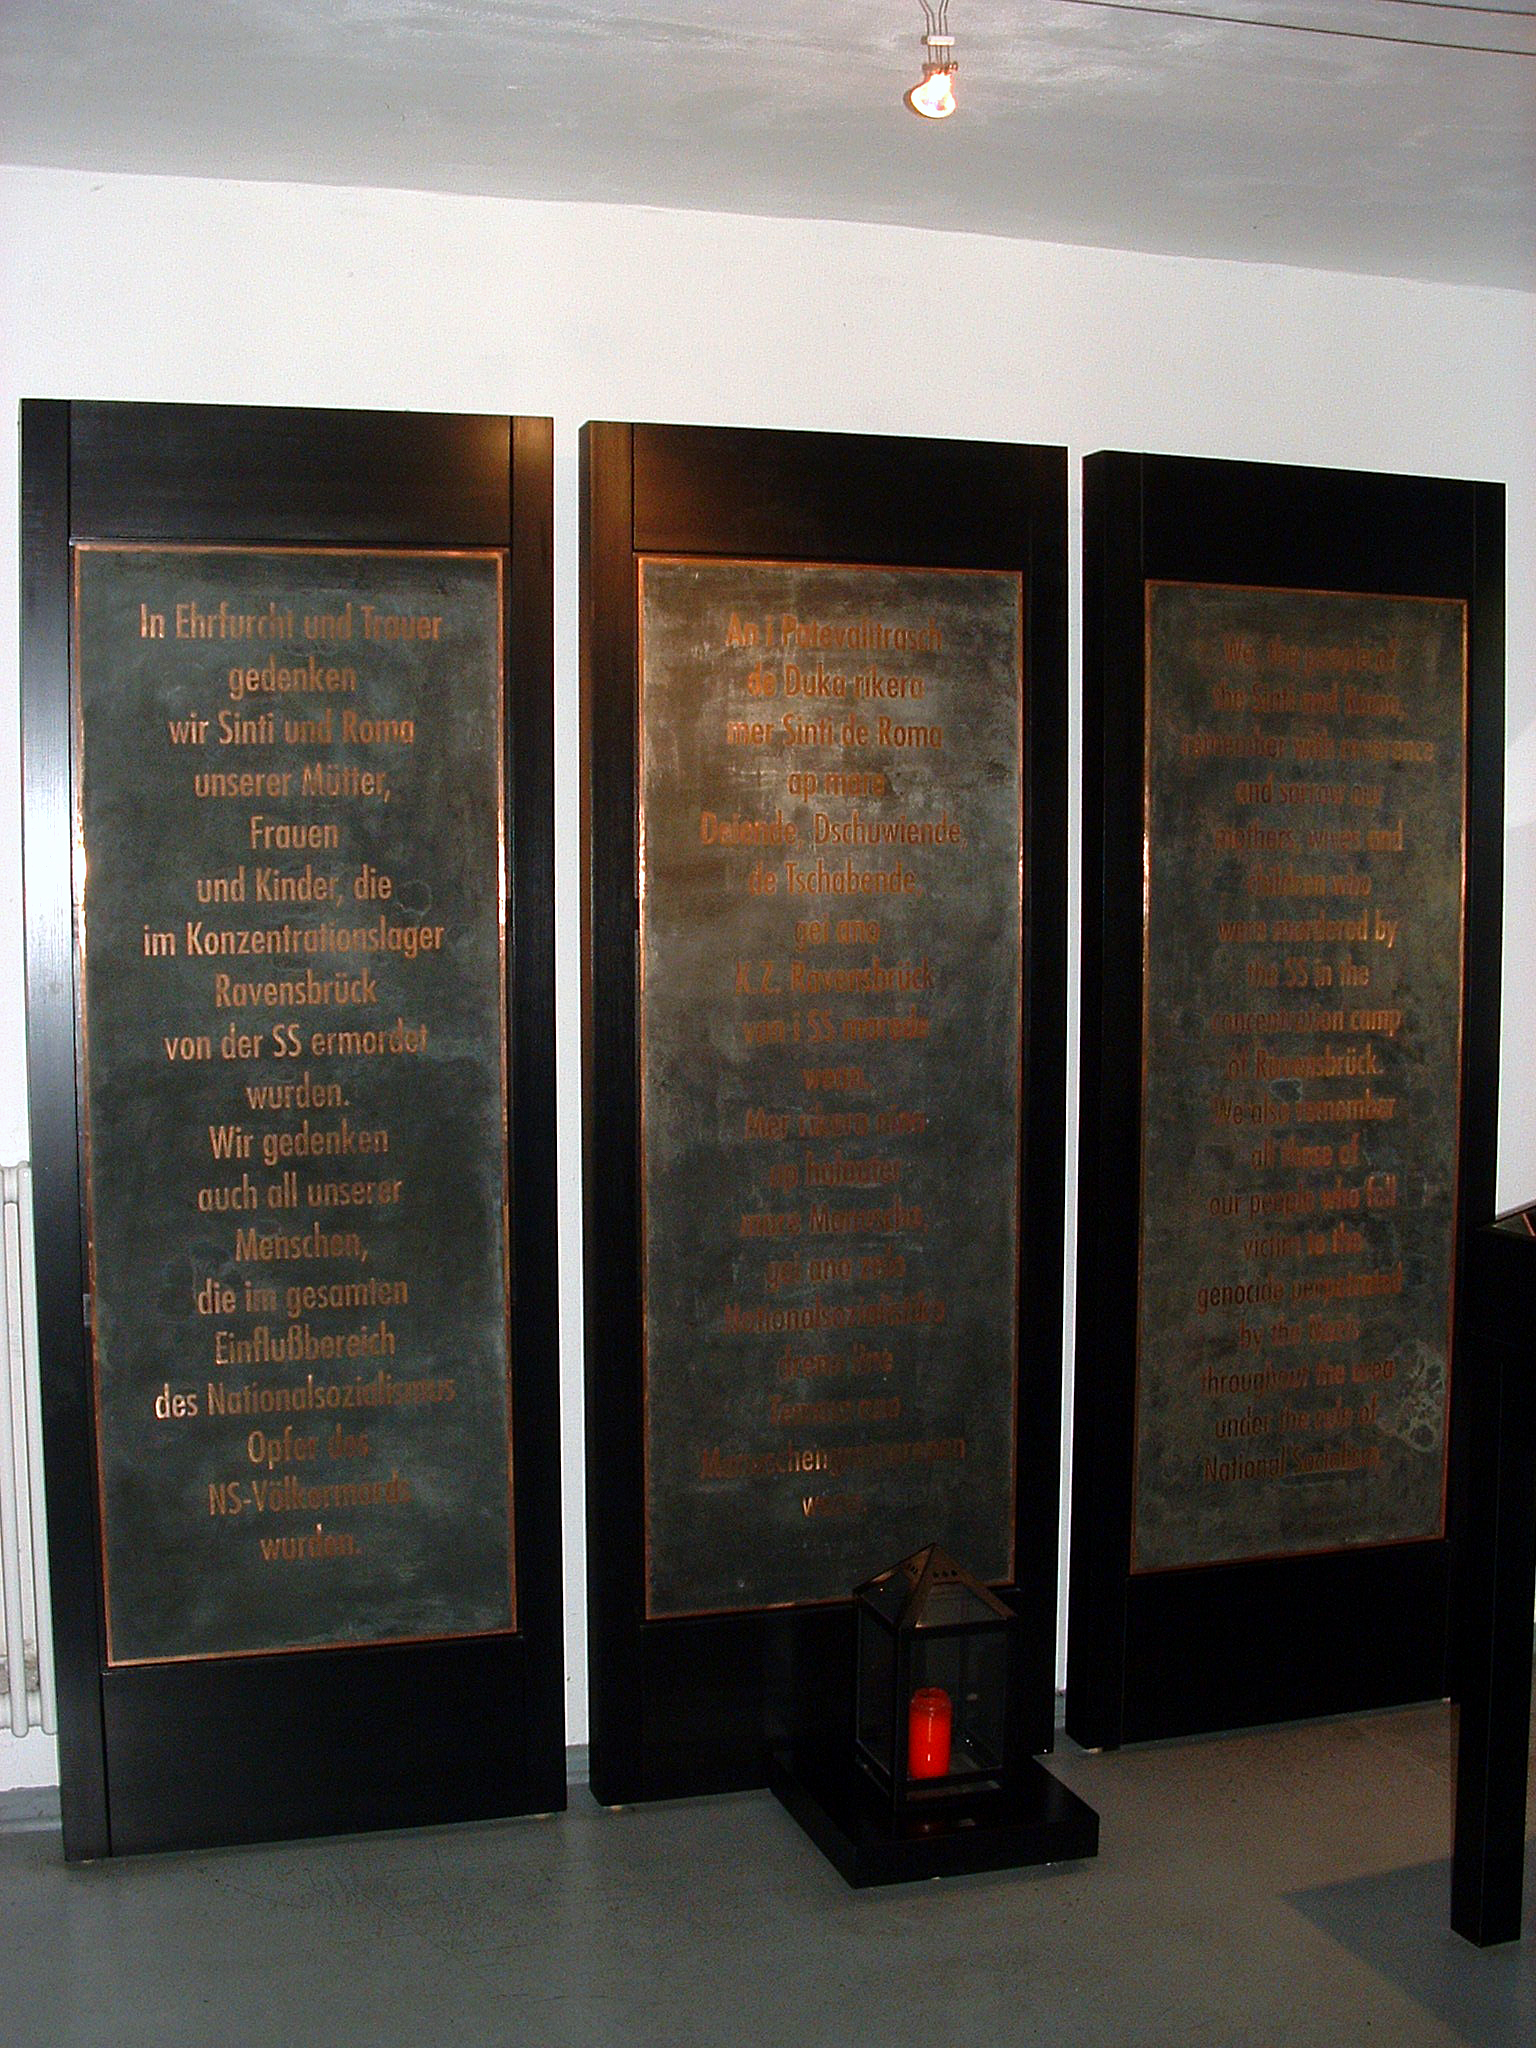 In Ehrfurcht und Trauer
gedenken
wir Sinti und Roma
unserer Mütter,
Frauen
und Kinder, die
im Konzentrationslager
Ravensbrück
von der SS ermordet
wurden.
Wir gedenken
auch all unserer
Menschen,
die im gesamten
Einflußbereich
des Nationalsozialismus
Opfer des
NS-Völkermords
wurden.
An i Patevalitrasch
de Duka rikera
mer Sinti de Roma
ap mare
Deiende, Dschuwiende,
de Tschabende,
gei ana
K.Z. Ravensbrück
von i SS
wenn.
Mer
ap
more
gei ana
We, the people of
the Sinti and Roma,
remember with reverence
and sorrow our
mothers, wives and
children who
were murdered by
the SS in the
concentration camp
of Ravensbrück.
We also remember
all these of
our people who fell
victim to the
genocide perpetrated
by the Nazis
throughout the area
under the rule of
National Socialism.